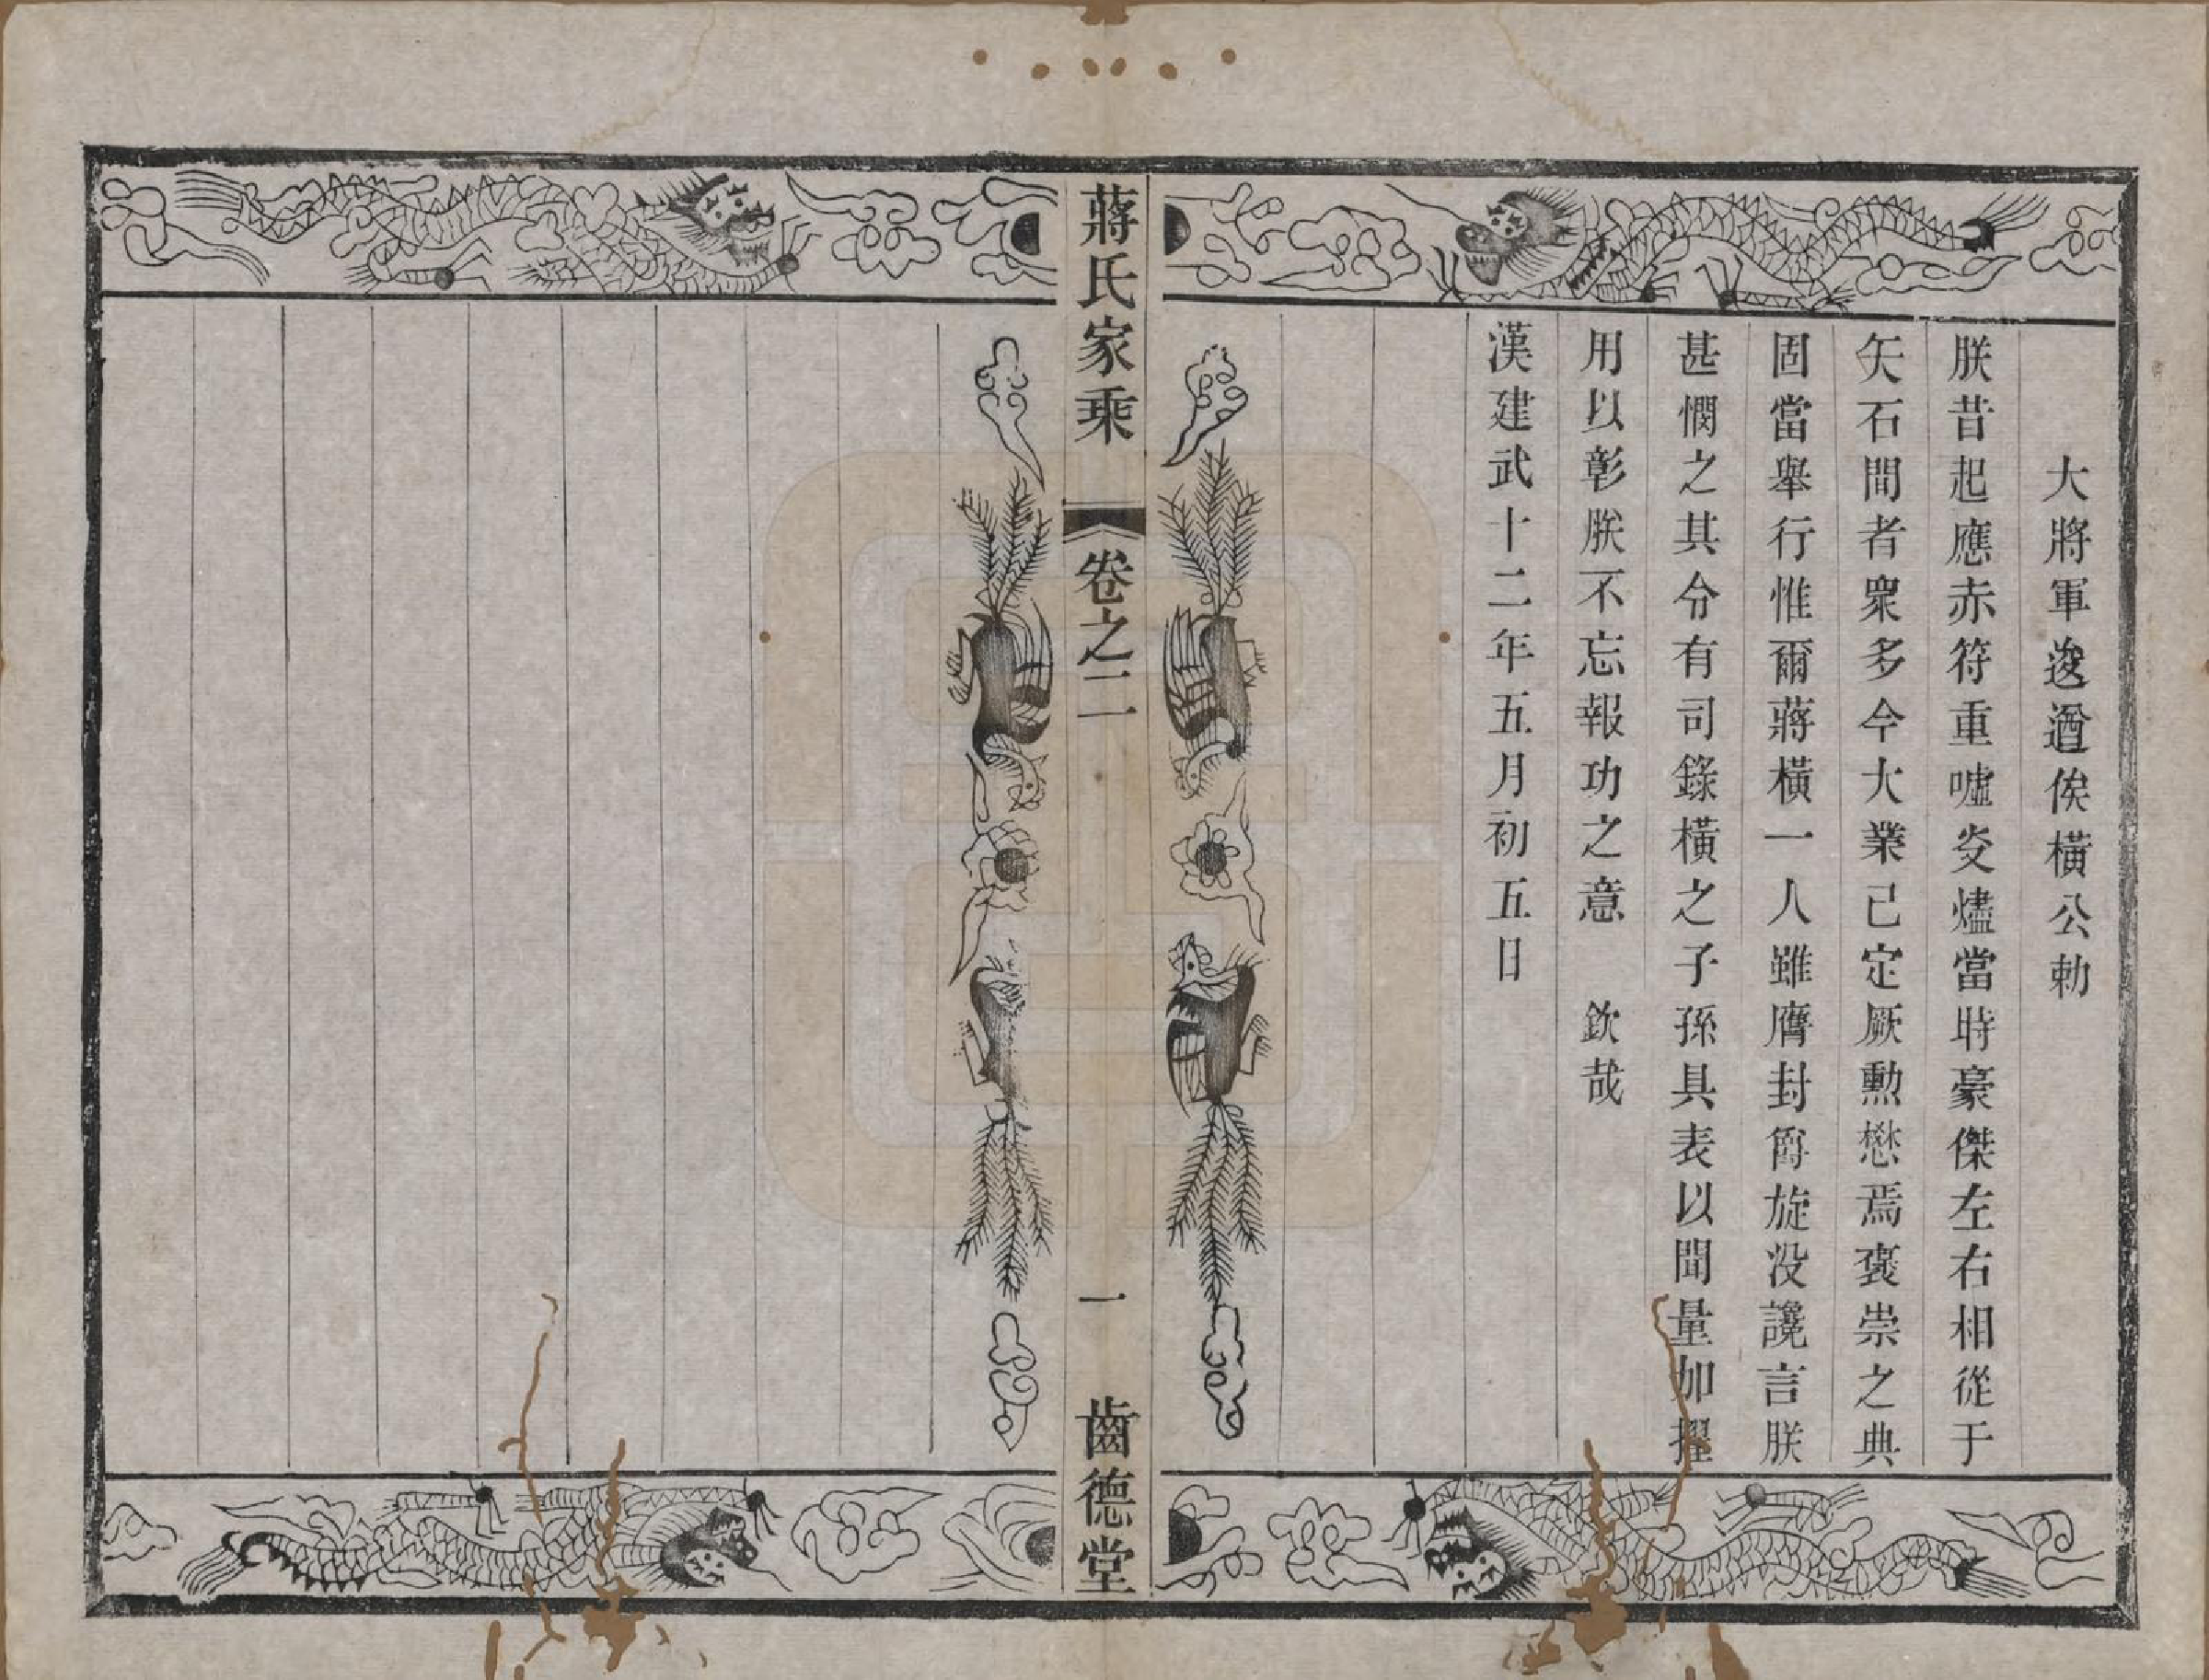 大將軍逡遒侯橫公勅
朕昔起應赤符重噓炎燼當時豪傑左右相從于
矢石間者衆多今大業已定厥勲懋焉褒崇之典
固當舉行惟爾蔣橫一人雖膺封爵旋没讒言朕
甚憫之其分有司錄橫之子孫具表以聞量加擢
用以彰朕不忘報功之意　欽哉
漢建武十二年五月初五日
蔣氏家乘　卷之二　一　齒德堂